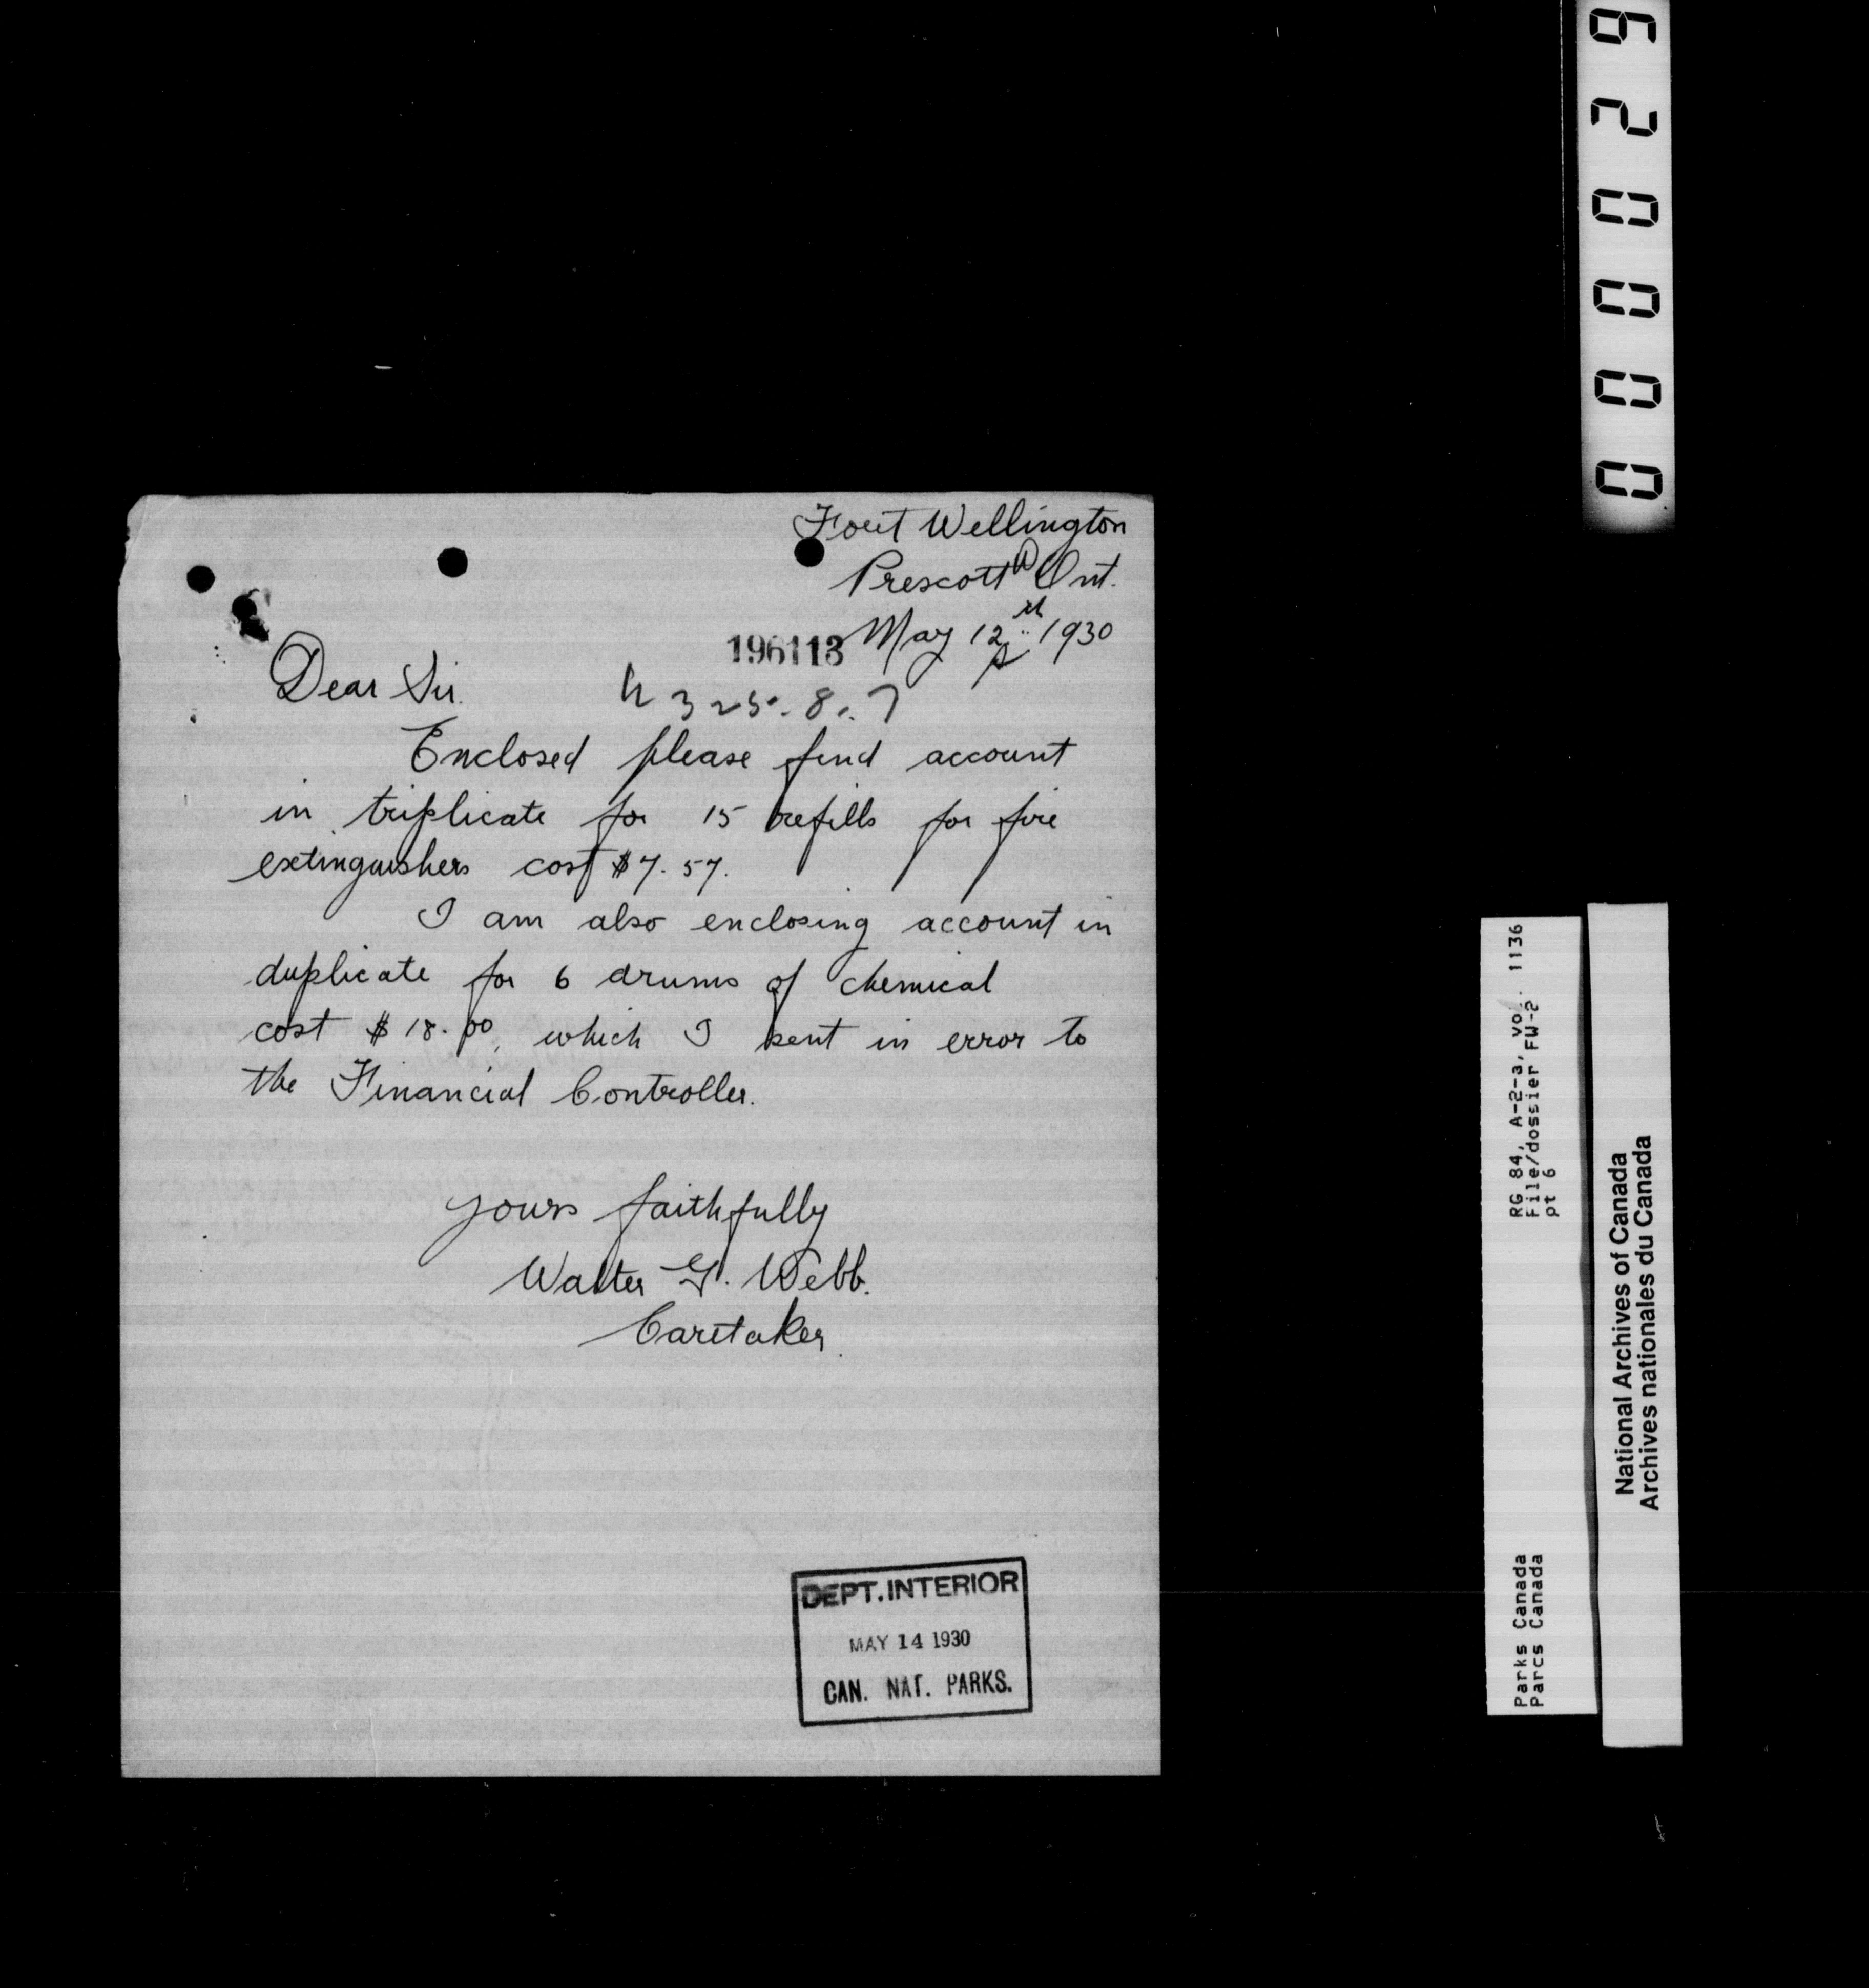 Fort Wellington
Prescott Ont.
May 12th 1930
196113
Dear Sir.
Enclosed please find account
in triplicate for 15 refills for fire
extinguishers cost $7.57.
I am also enclosing account in
duplicate for 6 drums of chemical
cost $18.00, which I sent in error to
the Financial Controller.
yours faithfully
Walter G. Webb.
Caretaker.
DEPT. INTERIOR
MAY 14 1930
CAN. NAT. PARKS.
000029
RG 84, A-2-a, vol. 1136
File/dossier FW-2
pt 6
Parks Canada
Parcs Canada
National Archives of Canada
Archives nationales du Canada